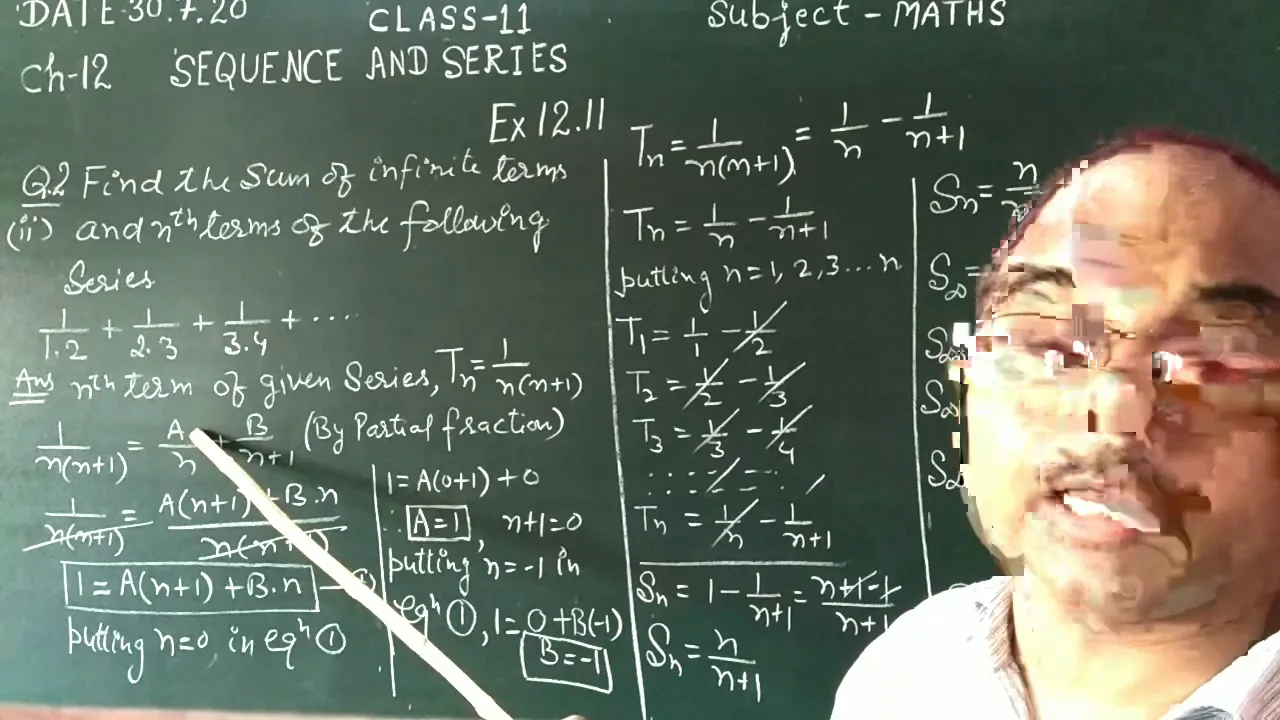 DATE-30.7.20 CLASS-11 Subject - MATHS
Ch-12 SEQUENCE AND SERIES
Ex 12.11
Q.2 Find the Sum of infinite terms
(ii) and nth terms of the following
Series
1/1.2 + 1/2.3 + 1/3.4 + ....
Ans nth term of given Series, Tn = 1/n(n+1)
1/n(n+1) = A/n + B/n+1 (By Partial fraction)
1/n(n+1) = A(n+1) + B.n / n(n+1)
1 = A(n+1) + B.n — ①
putting n=0, in eqn ①
1 = A(0+1) + 0
∴ A=1, n+1=0
putting n=-1 in
eqn ①, 1 = 0 + B(-1)
B=-1
Tn = 1/n(n+1) = 1/n - 1/n+1
Tn = 1/n - 1/n+1
putting n=1, 2, 3... n
T1 = 1/1 - 1/2
T2 = 1/2 - 1/3
T3 = 1/3 - 1/4
Tn = 1/n - 1/n+1
Sn = 1 - 1/n+1 = n+1-1/n+1
Sn = n/n+1
Sn = n/
S∞ =
S∞
S∞
S∞